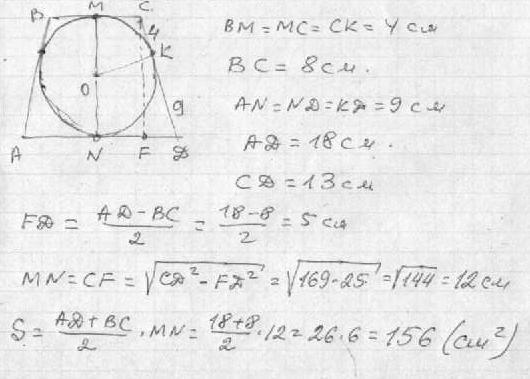 B M C
4
K
O
9
A N F D
BM = MC = CK = 4 см
BC = 8 см.
AN = ND = KD = 9 см
AD = 18 см.
CD = 13 см
FD = (AD - BC)/2 = (18 - 8)/2 = 5 см
MN = CF = √(CD² - FD²) = √(169 - 25) = √144 = 12 см
S = (AD + BC)/2 · MN = (18 + 8)/2 · 12 = 26 · 6 = 156 (см²)